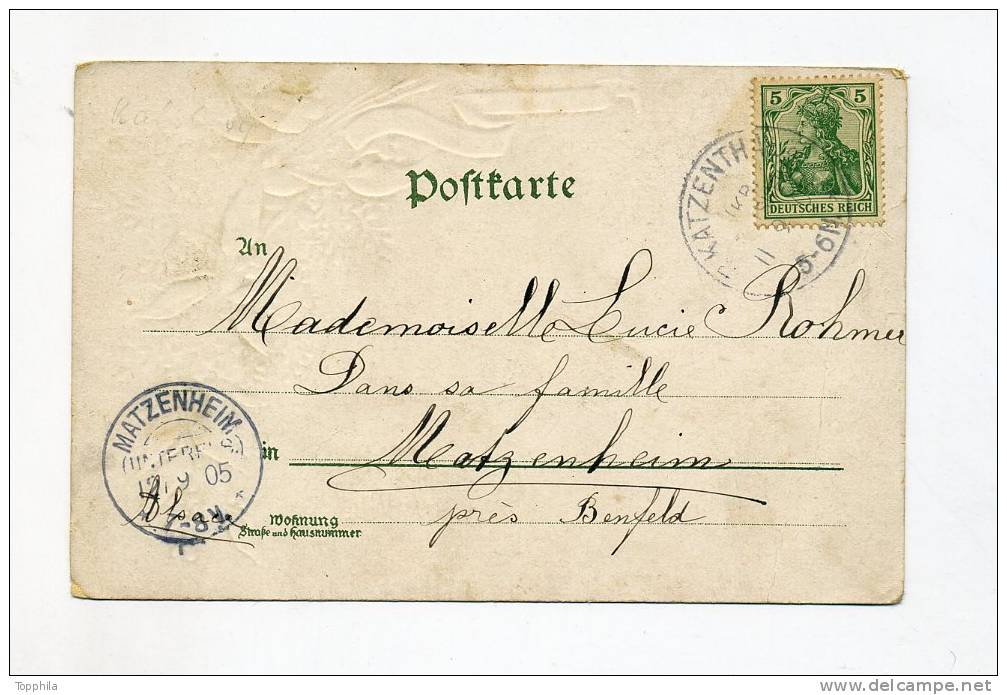 5 5
DEUTSCHES REICH
KATZENTH
11
5-6N
Postkarte
An
Mademoiselle Lucie Rohmer
Dans sa famille
in Matzenheim
près Benfeld
MATZENHEIM
(UNTEREL
12 9 05
7-8V
Alsace
Wohnung
Straße und Hausnummer
Topphila
delcampe.net